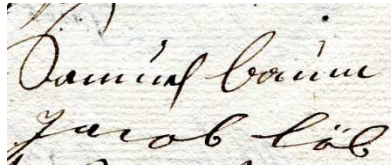 Samuel baum
Jacob löb